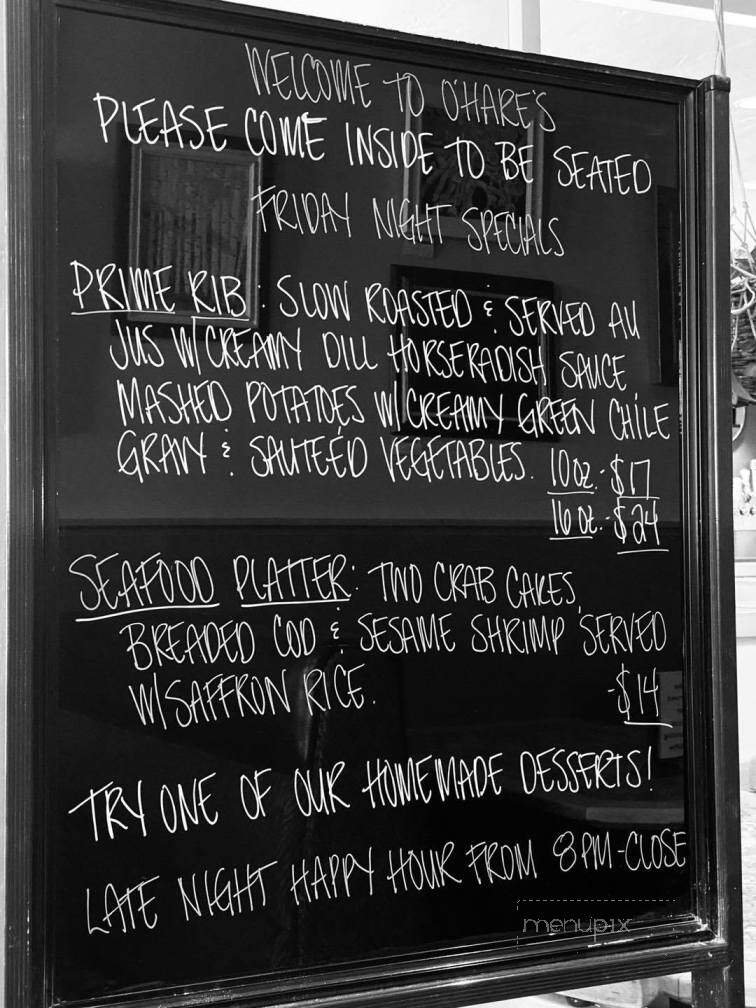 WELCOME TO O'HARE'S
PLEASE COME INSIDE TO BE SEATED
FRIDAY NIGHT SPECIALS
PRIME RIB: SLOW ROASTED & SERVED AU
JUS W/CREAMY DILL HORSERADISH SAUCE
MASHED POTATOES W/CREAMY GREEN CHILE
GRAVY & SAUTÉED VEGETABLES. 10 oz.-$17
16 oz.-$24
SEAFOOD PLATTER: TWO CRAB CAKES,
BREADED COD & SESAME SHRIMP SERVED
W/SAFFRON RICE. -$14
TRY ONE OF OUR HOMEMADE DESSERTS!
LATE NIGHT HAPPY HOUR FROM 8PM-CLOSE
menupix